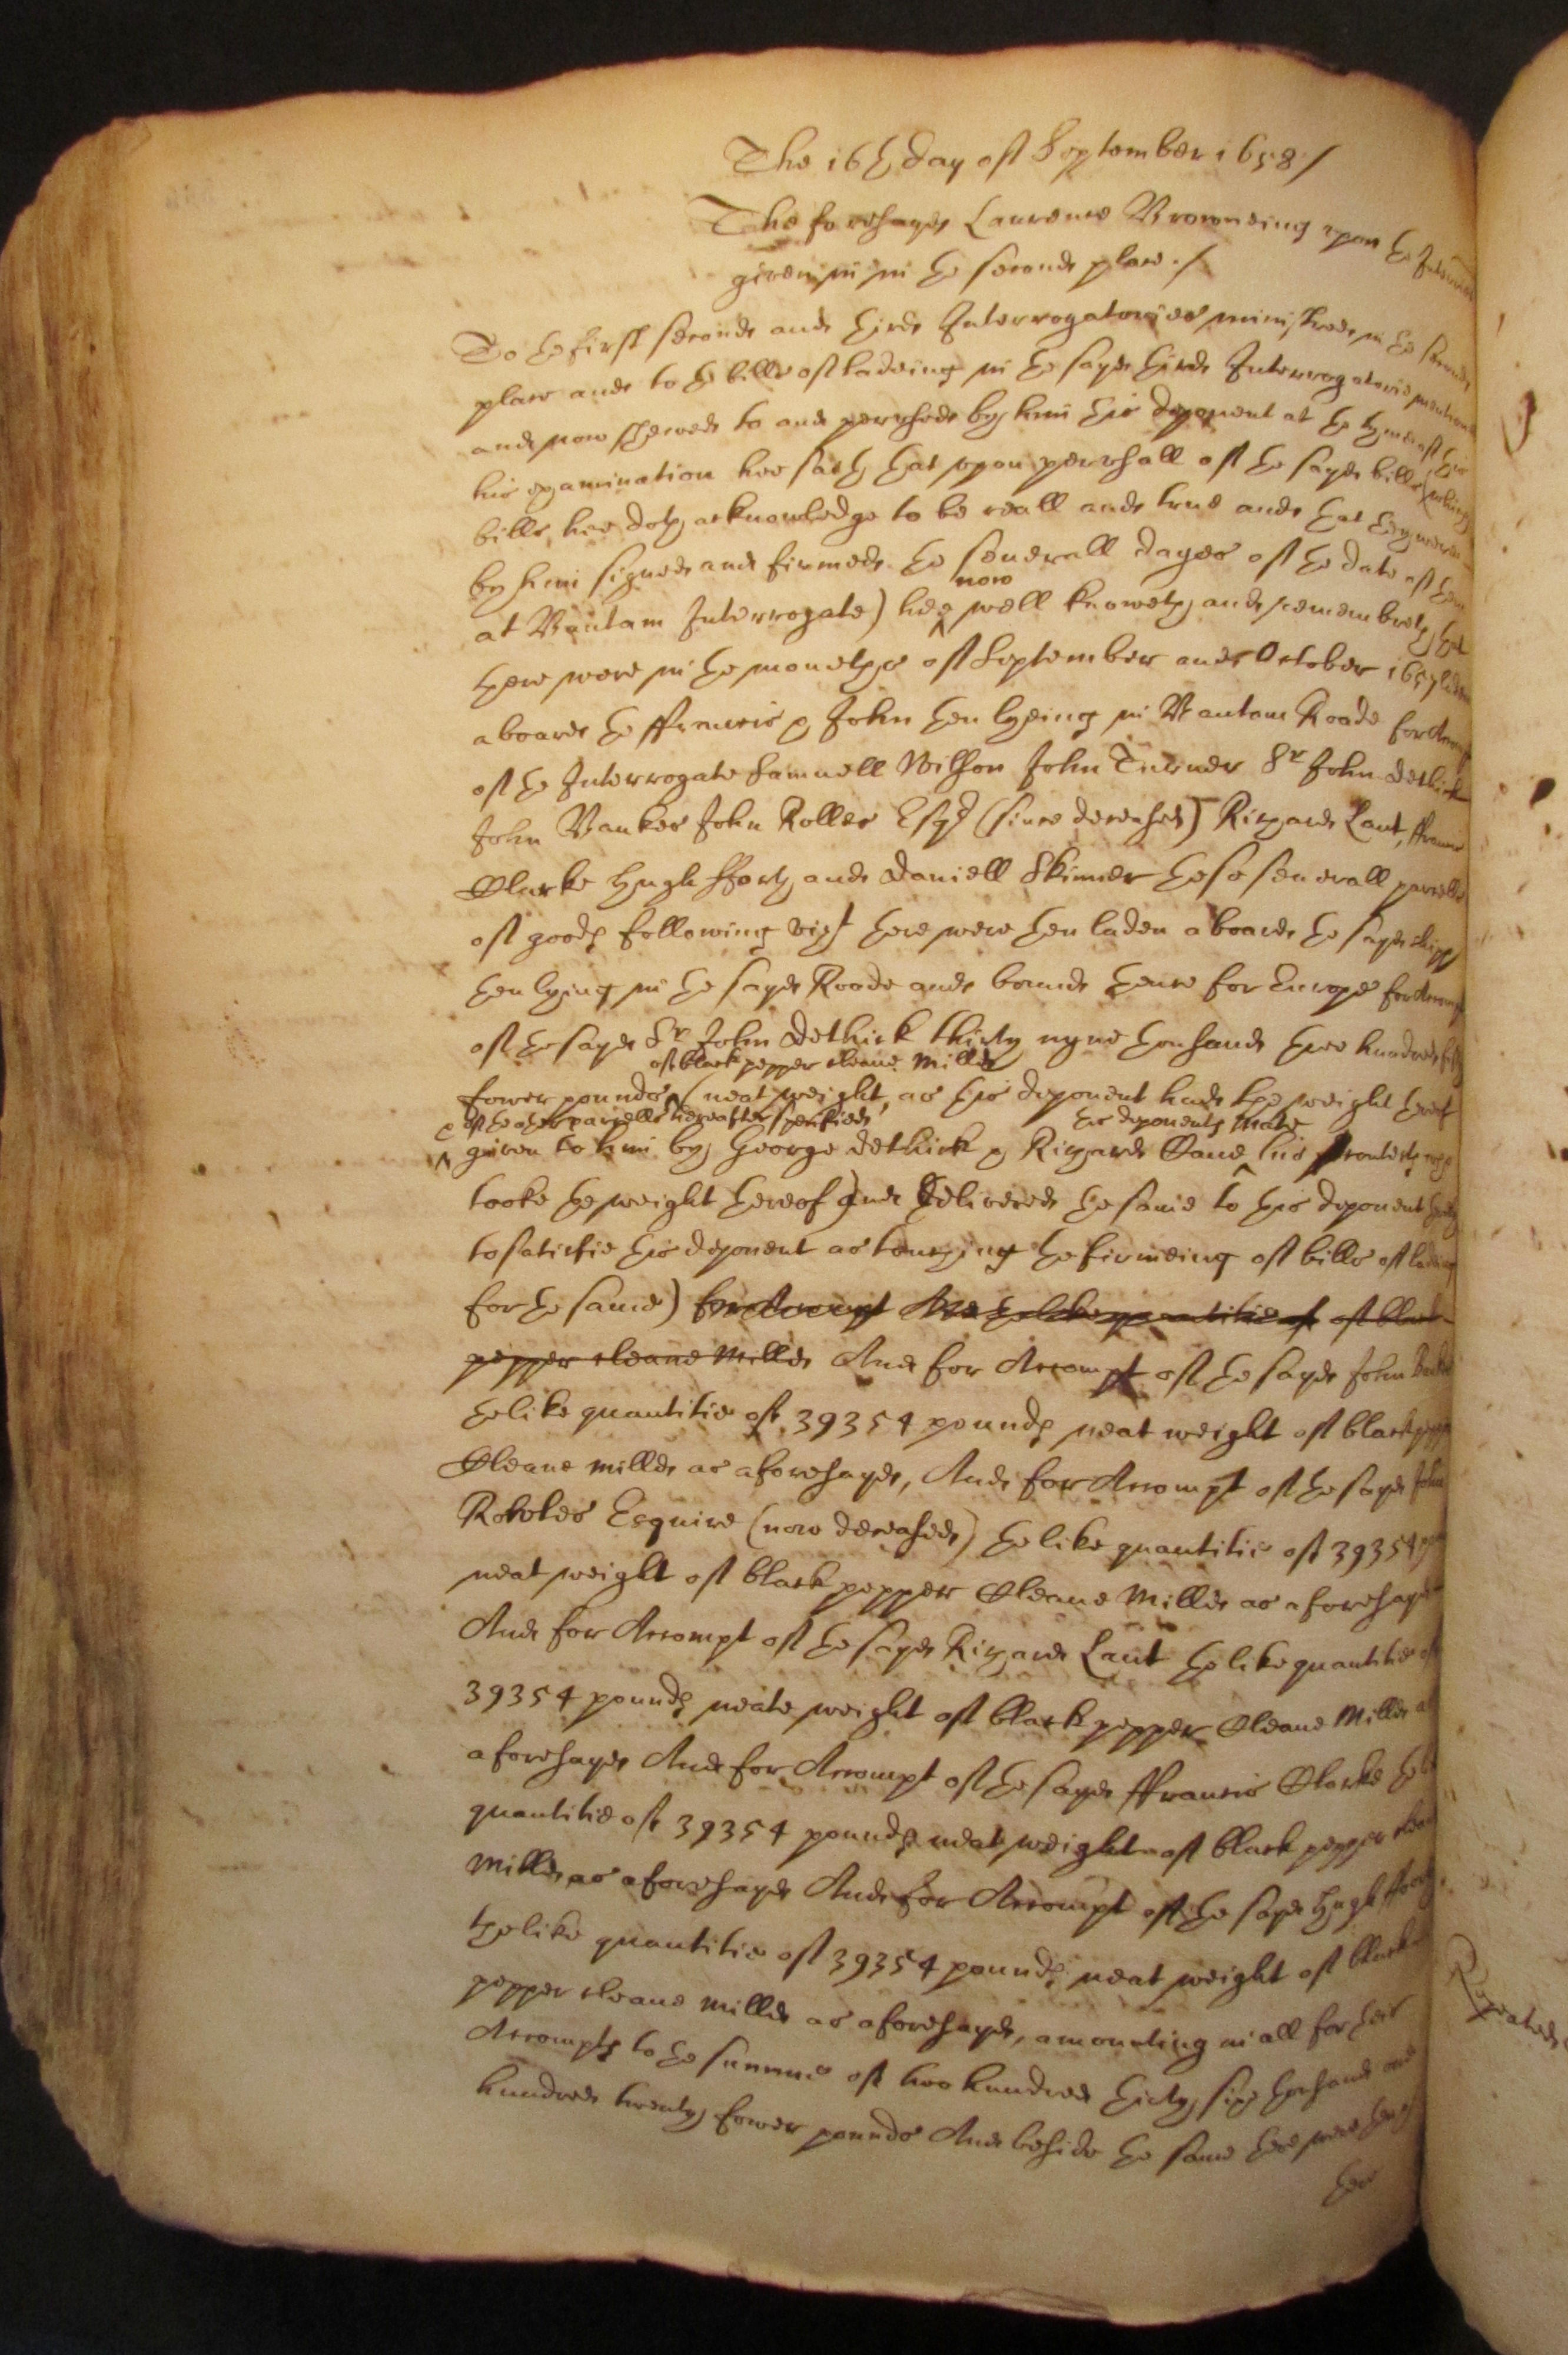 The 16th day of September 1658 /
The foresayd Laurence Browneing upon the
given in in the second place. /
To the first second and third Interrogatories ministred in the second
place and to the bills of ladeing in the sayd third Interrogatorie mentioned
and now shewed to and perused by him this deponent at the tyme of this
his examination hee saith that upon perusall of the sayd bills (which
bills hee doth acknowledge to be reall and true and that they were
by him signed and firmed the severall dayes of the date of them
at Bantam Interrogate) hee ^now well knoweth and remembreth that
there were in the moneths of September and October 1657 laden
aboard the ffrancis & John then lyeing in Bantam Roade for Accompt
of the Interrogate Samuell Wilson John Turner Sr John Dethick
John Bankes John Rolles Esqr (since deceased) Richard Lant, ffrancis
Clarke Hugh fforth and Daniell Skinner these severall parcells
of goods following vizt there were then laden aboard the sayd shipp
then lying in the sayd Roade and bound thence for Europe for Accompt
of the sayd Sr John Dethick thirty nyne thousand three hundred fifty
of black pepper cleane milled
fower pounds ^ (neat weight, as this deponent had the weight thereof
& of the other parcells hereafter specified this deponents Mate
^ given to him by George Dethick & Richard Cane ^ his
tooke the weight thereof and delivered the same to this deponent
to satisfie this deponent as touching the firmeing of bills of ladeing
for the same) for Accompt the like quantitie of of black
pepper cleane milled And for Accompt of the sayd John Bankes
the like quantitie of 39354 pounds neat weight of black pepper
Cleane milled as aforesayd, And for Accompt of the sayd John
Rolles Esquire (now deceased) the like quantitie of 39354
neat weight of black pepper Cleane Milled as aforesayd
And for Accompt of the sayd Richard Lant the like quantitie of
39354 pounds neate weight of black pepper Cleane Milled as
aforesayd And for Accompt of the sayd ffrancis Clarke the like
quantitie of 39354 pounds neat weight of black pepper cleane
Milled as aforesayd And for Accompt of the sayd Hugh fforth
the like quantitie of 39354 pounds neat weight of black
pepper cleane milled as aforesayd, amounting in all for their
Accompts to the summe of two hundred thirty six thousand one
hundred twenty fower pounds And beside the same there were
Repeated